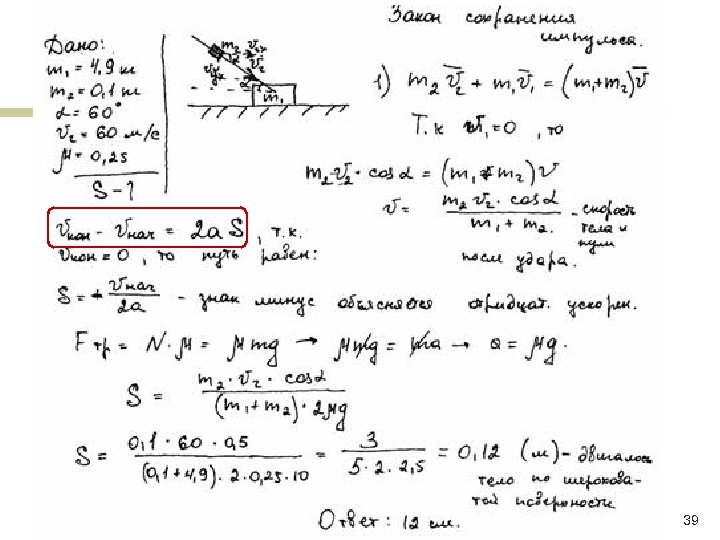 Закон сохранения
импульса.
Дано:
m₁ = 4,9 кг
m₂ = 0,1 кг
α = 60°
v₂ = 60 м/с
μ = 0,25
S - ?
m₂ v₂
m₁
1) m₂v̄₂ + m₁v̄₁ = (m₁+m₂)v̄
Т.к v₁=0, то
m₂·v₂·cosα = (m₁+m₂)v
v = m₂v₂·cosα / m₁ + m₂. - скорость
тела и
пули
после удара.
vкон - vнач = 2aS, т.к.
vкон = 0, то путь равен:
S = + vнач / 2a - знак минус объясняется отридцат. ускорен.
Fтр = N·μ = μmg → μmg = ma → a = μg.
S = m₂·v₂·cosα / (m₁+m₂)·2μg
S = 0,1·60·0,5 / (0,1+4,9)·2·0,25·10 = 3 / 5·2·2,5 = 0,12 (м) - двигалось
тело по шерохова-
той поверхности
Ответ: 12 см.
39